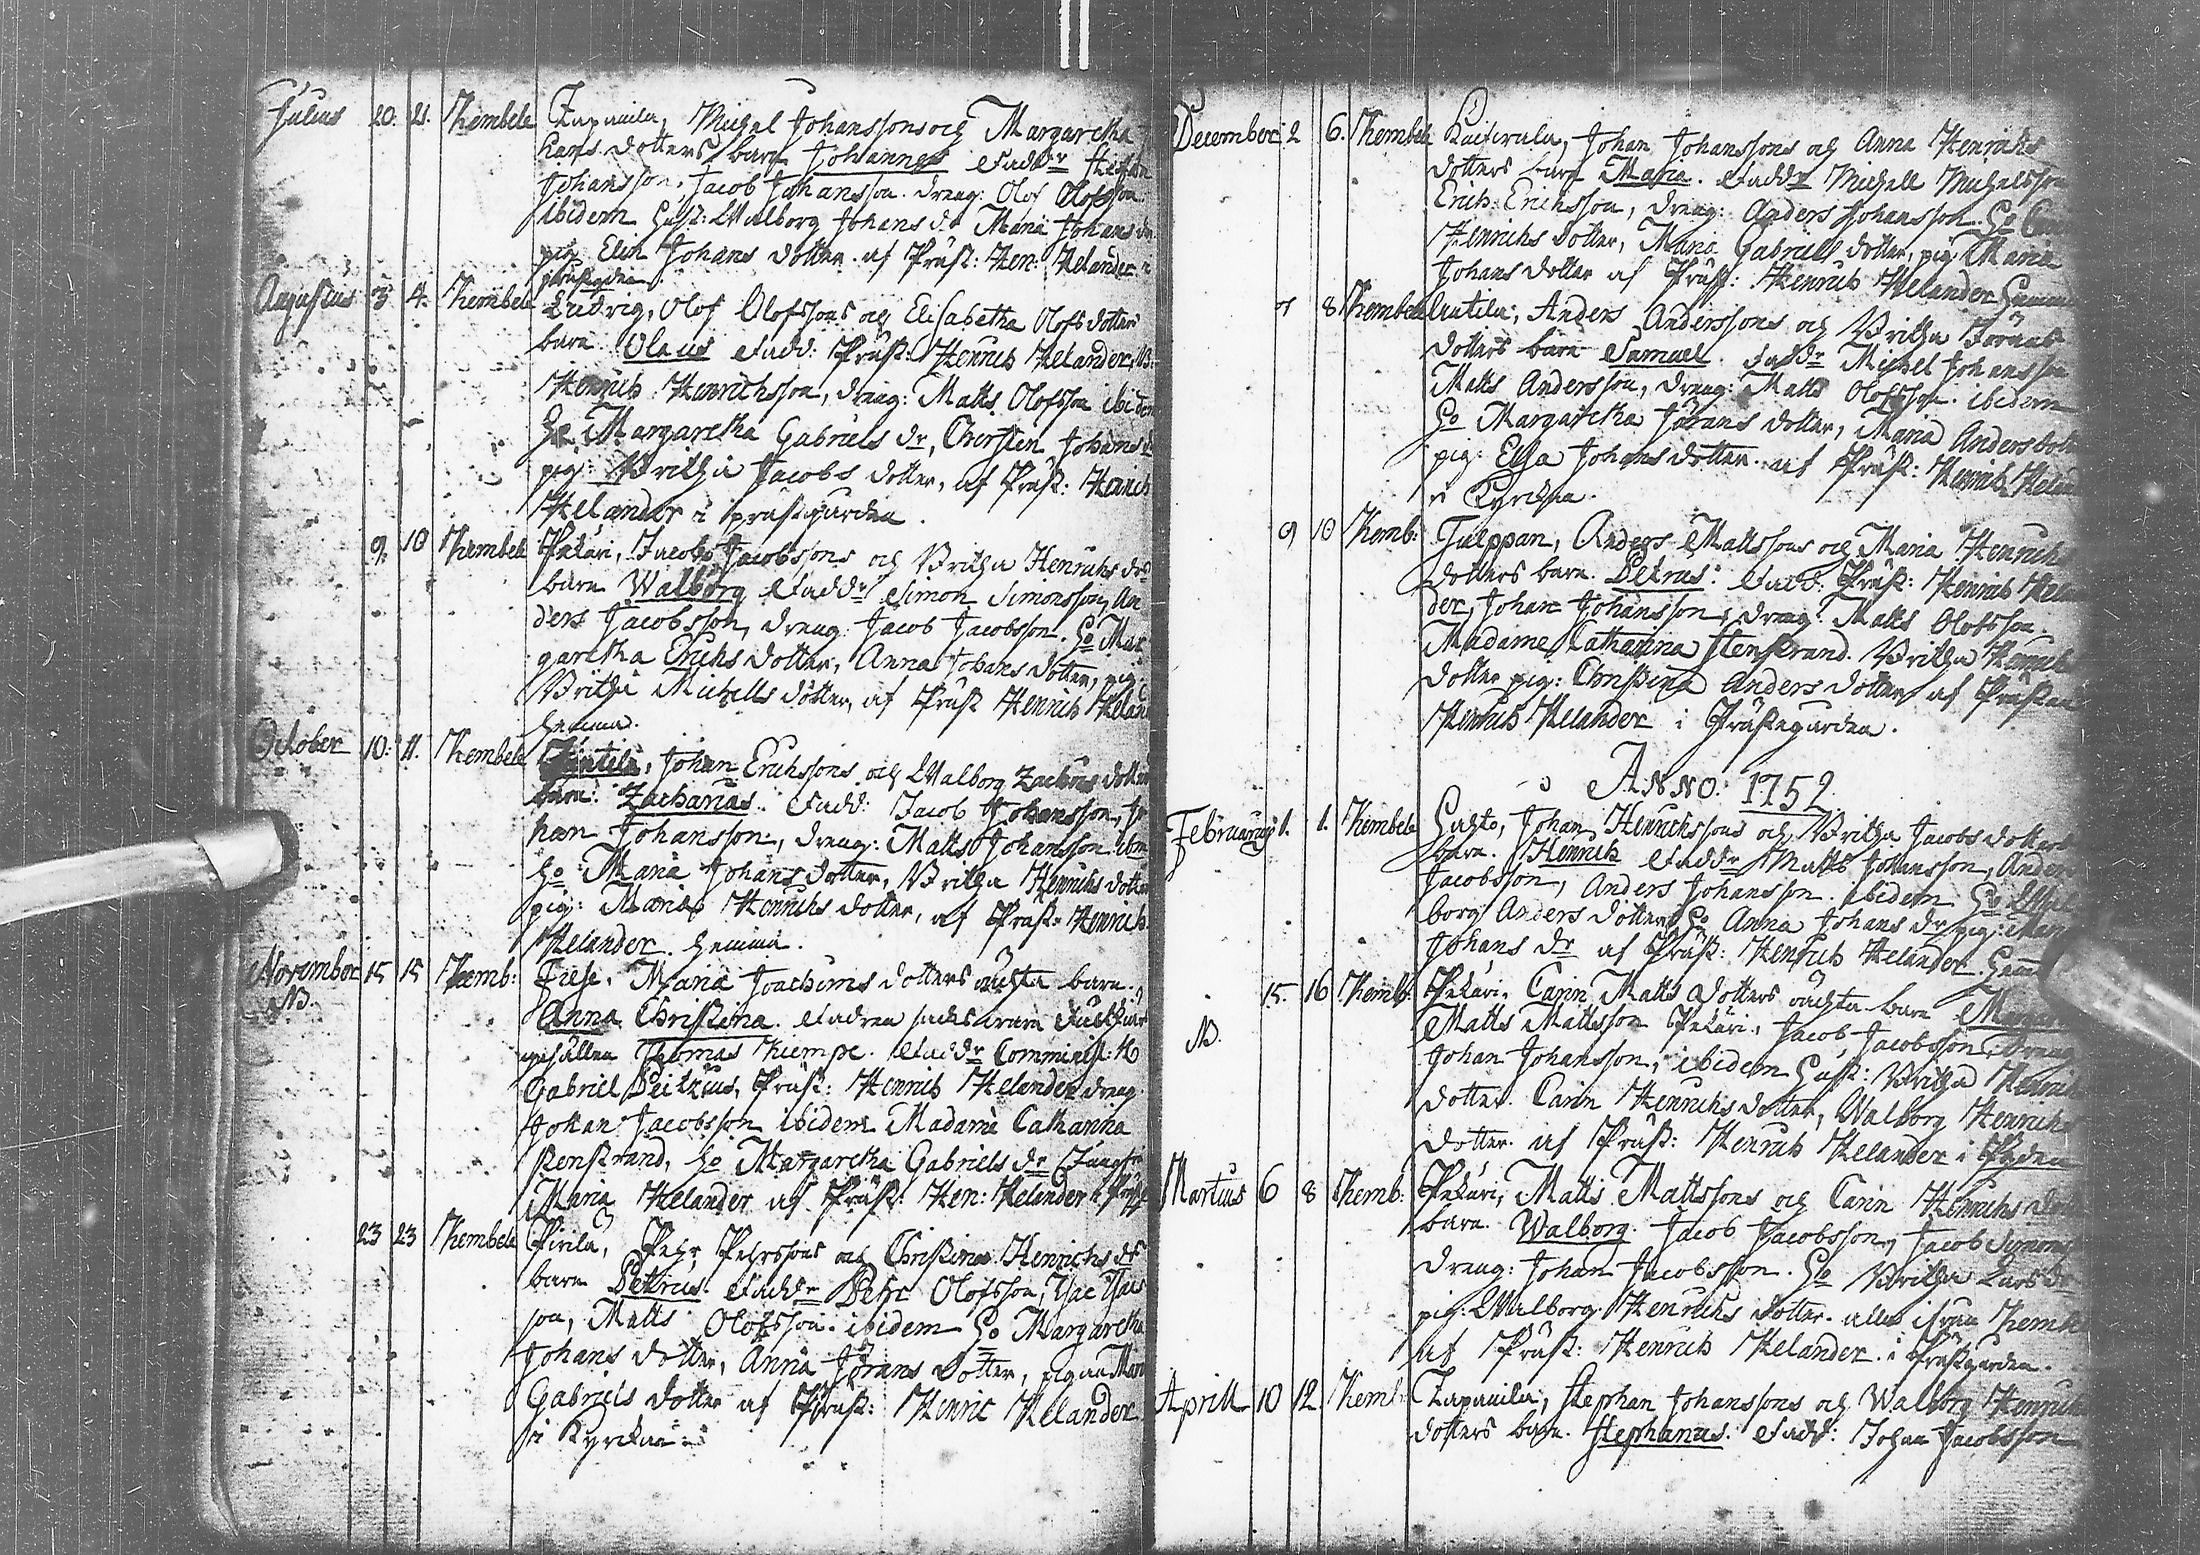 Julius 20. 21. Kembele Zapauila, Michel Johanssons och Margaretha
Hans dotters barn Johannes Faddr Stephan
Johansson, Jacob Johansson. dräng: Olof Olofsson
ibidem Hust: Walborg Johans dr Maria Johans dr
pig. Elin Johans dotter. af Präst: Hen: Helander i
prästegården.
Augustus 3 4. Kembele Ludvig, Olof Olofssons och Elisabetha Olofs dotters
barn Olaus Fadd: Präst: Henrich Helander,
Henrich Henrichsson, dräng: Matts Olofsson ibidem
Ho Margaretha Gabriels dr, Chersten Johans dr
pig: Britha Jacobs dotter, af Präst: Henrich
Helander i prästgården.
9. 10 Kembele Pekuri, Jacob Jacobssons och Britha Henrichs drs
barn Walborg Faddr Simon Simonsson, An
ders Jacobsson, dräng: Jacob Jacobsson. Ho Mar
garetha Erichs dotter, Anna Johans dotter, pig.
Britha Michells dotter, af Präst Henrich Helan
hemma.
October 10. 11. Kembele Johan Erichssons och Walborg Zachris dotters
barn: Zacharias. Fadd: Jacob Johansson, Jo
han Johansson, dräng: Matts Johansson ibm
Ho Maria Johans dotter, Britha Henrichs dotter
pig: Maria Henrichs dotter, af Präst: Henrich
Helander. hemma.
November 15 15 Kemb: Maria Joachims dotters oächta barn.
NB.
Anna Christina. Fadren
gesällen Thomas Kempe. Faddr Comminist: H
Gabriel Peitzius, Präst: Henrich Helander dräng
Johan Jacobsson ibidem Madame Catharina
Stenstrand, Ho Margaretha Gabriels dr Jungfr
Maria Helander af Präst: Hen: Helander i
23 23 Kembele Pirila, Pehr Pehrssons och Christina Henrichs drs
barn Pettrus. Faddr Pehr Olofsson,
son, Matts Olofsson. ibidem Ho Margaretha
Johans dotter, Anna Jörans dotter, pigan
Gabriels dotter af Präst: Henric Helander
i Kyrckan
December 2 6. Kembele Johan Johanssons och Anna Henrichs
dotters barn Maria. Faddr Michell Michelsson
Erich Erichsson, dräng: Anders Johansson. Ho
Henrichs dotter, Maria Gabriells dotter, pig: Maria
Johans dotter af Präst: Henrich Helander hemma
7 8 Kembele Anders Anderssons och Britha Jörans
dotters barn Samuel. Faddr Michel Johansson
Matts Andersson, dräng: Matts Olofsson. ibidem
Ho Margaretha Jörans dotter, Maria Anders dotter
pig: Elsa Johans dotter. af Präst: Henrich Helan
i Kyrckan.
9 10 Kemb: Tulppan, Anders Mattssons och Maria Henrichs
dotters barn. Petrus: Fadd: Präst: Henrich Helan
der, Johan Johansson, dräng: Matts Olofsson.
Madame Catharina Stenstrand. Britha Henrichs
dotter pig: Christina Anders dotter af Prästen
Henrich Helander i Prästegården.
ANNO: 1752
Februarius 1. 1. Kembele Hahto, Johan Henrichssons och Britha Jacobs dotters
barn. Henrich Faddr Matts Johansson, Anders
Jacobsson, Anders Johansson. ibidem Ho Wal
borg Anders dotter, Ho Anna Johans dr pig:
Johans dr af Präst: Henrich Helander.
15. 16 Kemb: Pekuri, Carin Matts dotters oächta barn
NB.
Matts Mattsson Pekuri, Jacob Jacobsson, dräng
Johan Johansson, ibidem Hust: Britha Henrichs
dotter. Carin Henrichs dotter, Walborg Henrichs
dotter. af Präst: Henrich Helander i
Martius 6 8 Kemb: Pekuri, Matts Mattssons och Carin Henrichs dotters
barn. Walborg. Jacob Jacobsson, Jacob Simons
dräng: Johan Jacobsson. Ho Britha Lars dr
pig: Walborg Henrichs dotter. alla ifrån Kembele
af Präst: Henrich Helander. i Prästgården.
Aprill 10 12. Kemb: Zapauila, Stephan Johanssons och Walborg Henrichs
dotters barn. Stephanus. Fadd: Johan Jacobsson